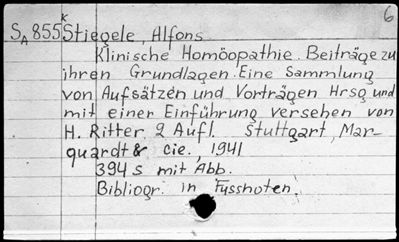 6
SA 855 k Stiegele, Alfons
Klinische Homöopathie. Beiträge zu
ihren Grundlagen. Eine Sammlung
von Aufsätzen und Vorträgen Hrsg und
mit einer Einführung versehen von
H. Ritter. 2 Aufl. Stuttgart, Mar-
quardt & cie., 1941
394 s mit Abb.
Bibliogr. in Fussnoten.